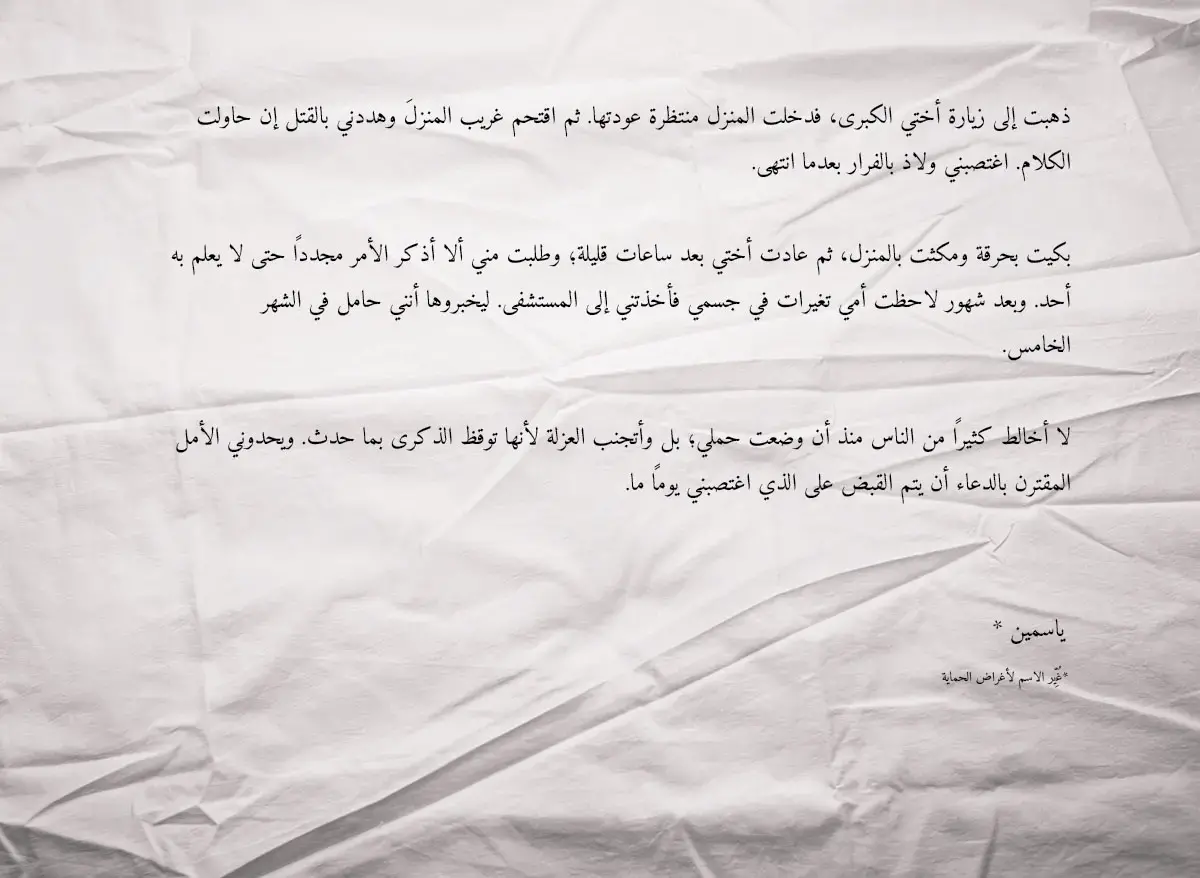 ذهبت إلى زيارة أختي الكبرى، فدخلت المنزل منتظرة عودتها. ثم اقتحم غريب المنزلَ وهددني بالقتل إن حاولت
الكلام. اغتصبني ولاذ بالفرار بعدما انتهى.
بكيت بحرقة ومكثت بالمنزل، ثم عادت أختي بعد ساعات قليلة؛ وطلبت مني ألا أذكر الأمر مجدداً حتى لا يعلم به
أحد. وبعد شهور لاحظت أمي تغيرات في جسمي فأخذتني إلى المستشفى. ليخبروها أنني حامل في الشهر
الخامس.
لا أخالط كثيراً من الناس منذ أن وضعت حملي؛ بل وأتجنب العزلة لأنها توقظ الذكرى بما حدث. ويحدوني الأمل
المقترن بالدعاء أن يتم القبض على الذي اغتصبني يوماً ما.
ياسمين *
*غُيِّر الاسم لأغراض الحماية